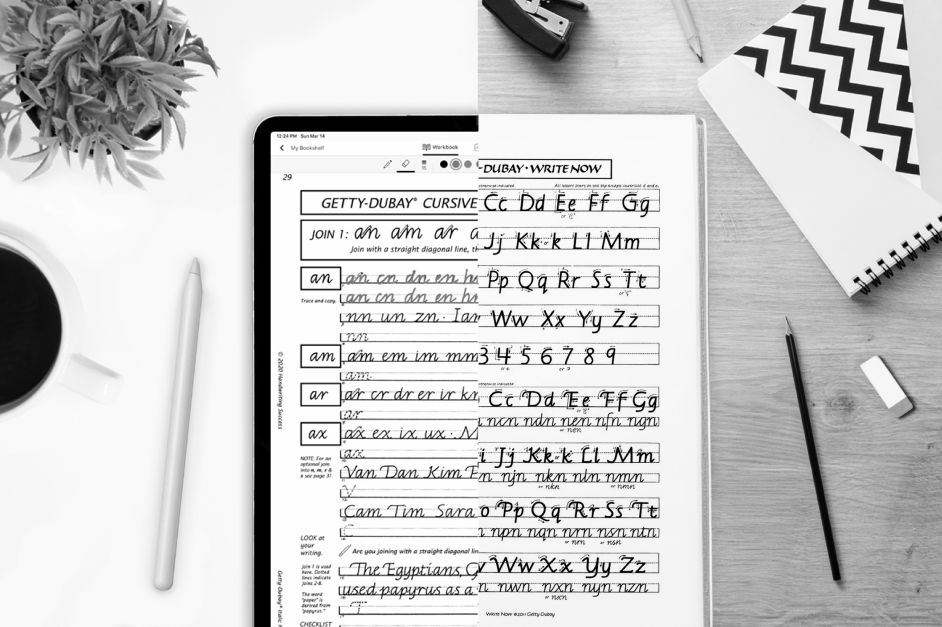 12:24 PM Sun Mar 14
My Bookshelf
Workbook
29
GETTY-DUBAY® CURSIVE
JOIN 1: an am ar a
Join with a straight diagonal line, th
an
an cn dn en hn
Trace and copy.
an cn dn en hn
nn un zn · Ian
nn
am
am em im mm
am
ar
ar cr dr er ir kr
ar
ax
ax ex ix ux · N
ax
NOTE: For an
optional join
into n, m, r &
x see page 31.
Van Dan Kim E
V
Cam Tim Sara
C
LOOK at
your
writing.
Are you joining with a straight diagonal lin
Join 1 is used
here. Dotted
lines indicate
joins 2-8.
The Egyptians, G
The word
"paper" is
derived from
"papyrus."
used papyrus as a
T
CHECKLIST
© 2020 Handwriting Success
Getty-Dubay® Italic
DUBAY · WRITE NOW
otherwise indicated
Cc Dd Ee Ff Gg
Jj Kk or k Ll Mm
Pp Qq Rr Ss Tt
Ww Xx Yy Zz
3 4 5 6 7 8 9
otherwise indicated
Cc Dd Ee Ff Gg
ncn ndn nen nfn ngn
or nen
i Jj Kk or k Ll Mm
njn nkn nln nmn
or nkn or nmn
o Pp Qq Rr Ss Tt
npn nqn nrn nsn ntn
or nrn or nsn
v Ww Xx Yy Zz
nwn nxn nyn nzn
or nxn
Write Now ©2011 Getty-Dubay